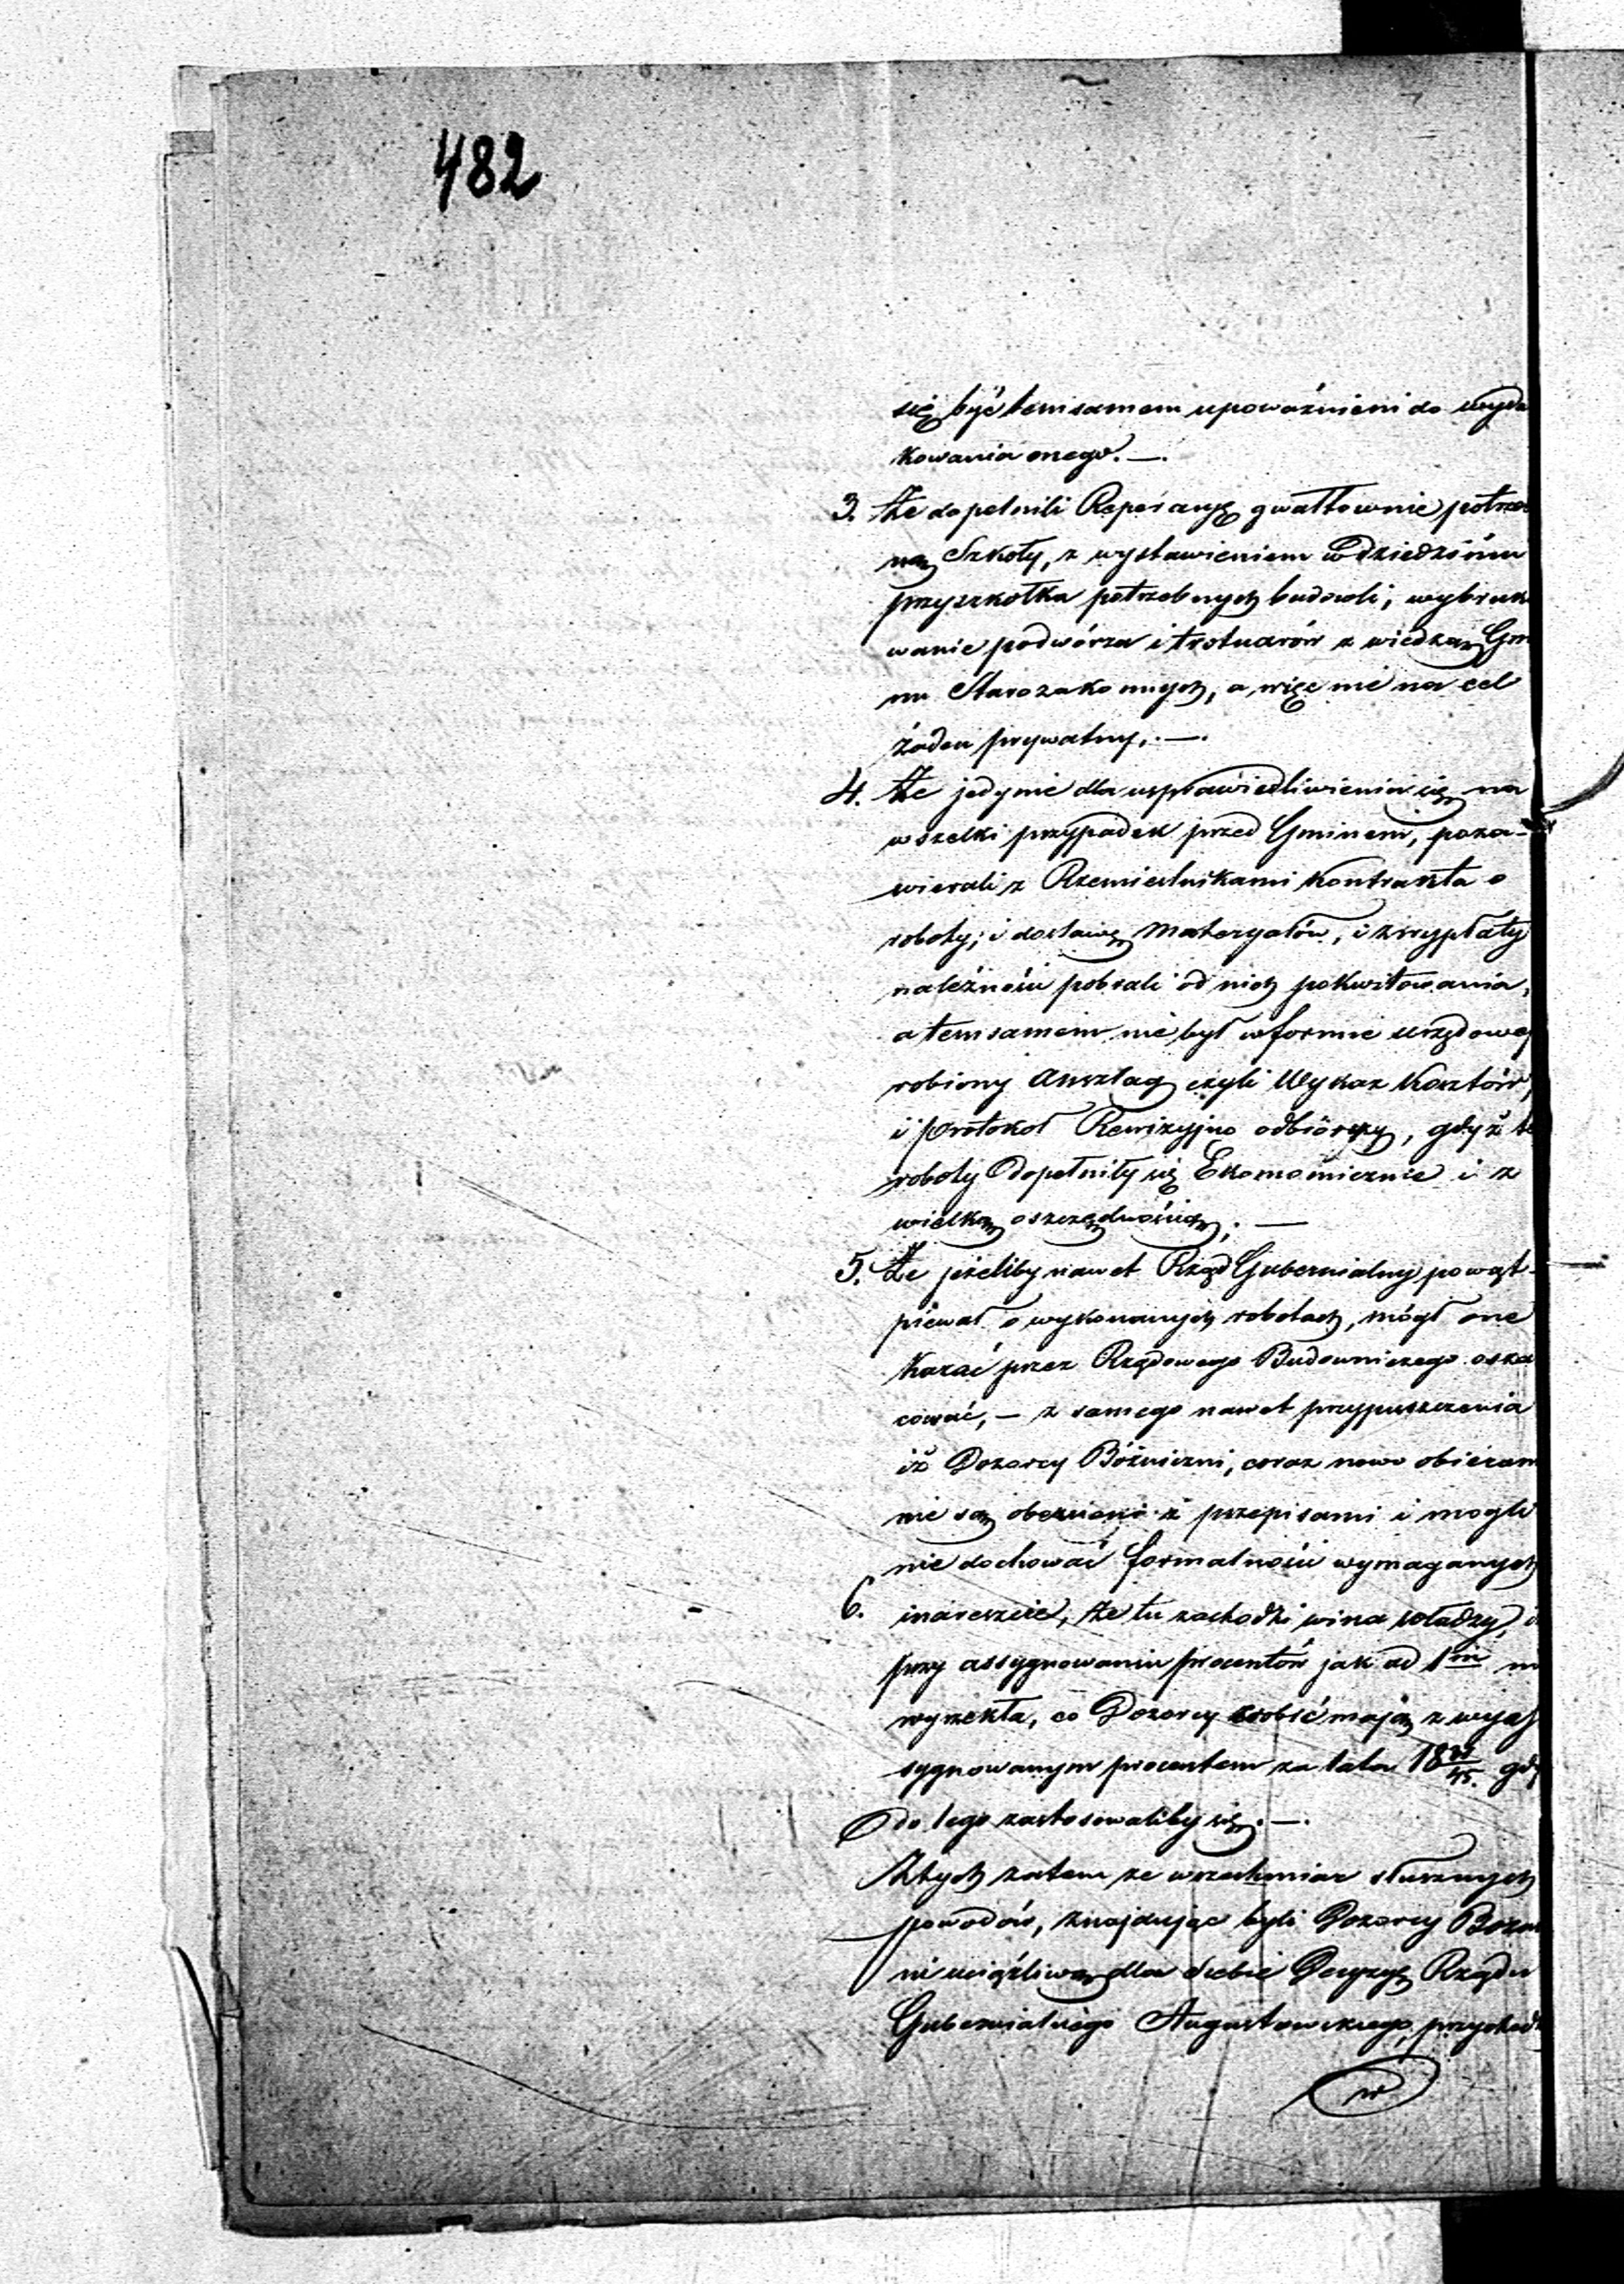 482
się być temsamem upoważnieni do wyda
kowania onego. —.
3. Że dopełnili Reperacyę gwałtownie potrze
ną Szkoły, z wystawieniem w dziedzińcu
przyszkółka potrzebnych budowli, wybruk
wanie podwórza i trotuarów z wiedzą Gm
nu Starozakonnych, a więc nie na cel
żaden prywatny, . —.
4. Że jedynie dla usprawiedliwienia się na
wszelki przypadek przed Gminem, poza-
wierali z Rzemieślnikami kontrakta o
roboty, i dostawę Materyałów, i z wypłaty
należności pobrali od nich pokwitowania,
a temsamem nie był w formie urzędowej
robiony Anszlag czyli Wykaz kosztów,
i protokół Rewizyjno odbiorczy, gdyż te
roboty dopełniły się Ekonomicznie i z
wielką oszczędnością, . —
5. Że jeżeliby nawet Rząd Gubernialny powąt-
piewał o wykonanych robotach, mógł one
kazać przez Rządowego Budowniczego osza
cować, — z samego nawet przypuszczenia
iż Dozorcy Bóżniczni, coraz nowo obieran
nie są obeznani z przepisami i mogli
nie dochować formalności wymaganych
6. inareszcie, że tu zachodzi wina władzy, i
przy assygnowaniu procentów jak ad 1m ni
wyrzekła, co Dozorcy zrobić mają z wyas
sygnowanym procentem za lata 18 /45. gdy
do tego zastosowaliby się. —.
Ztych zatem ze wszechmiar słusznych
powodów, znajdując byli Dozorcy Bożn
ni uciążliwą dla siebie Decyzyę Rządu
Gubernialnego Augustowskiego, przychod